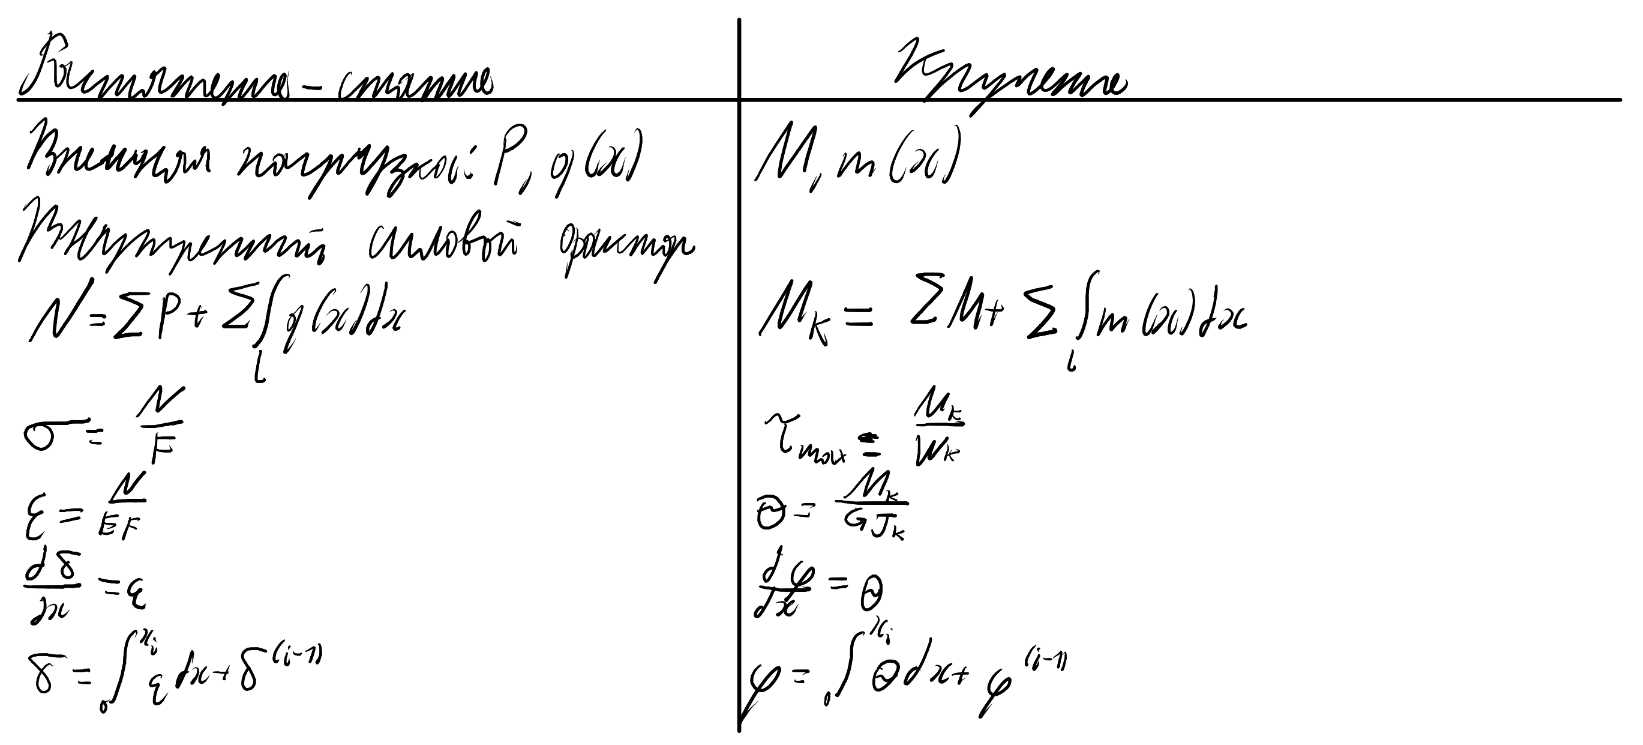 Растяжение – сжатие
Кручение
Внешняя нагрузкой: P, q(x)
M, m(x)
Внутренний силовой фактор
N = ΣP + Σ∫_l q(x)dx
M_k = ΣM + Σ∫_l m(x)dx
σ = N/F
τ_max = M_k/W_k
ε = N/EF
θ = M_k/GJ_k
dδ/dx = ε
dφ/dx = θ
δ = ∫_0^{x_i} ε dx + δ^{(i-1)}
φ = ∫_0^{x_i} θ dx + φ^{(i-1)}